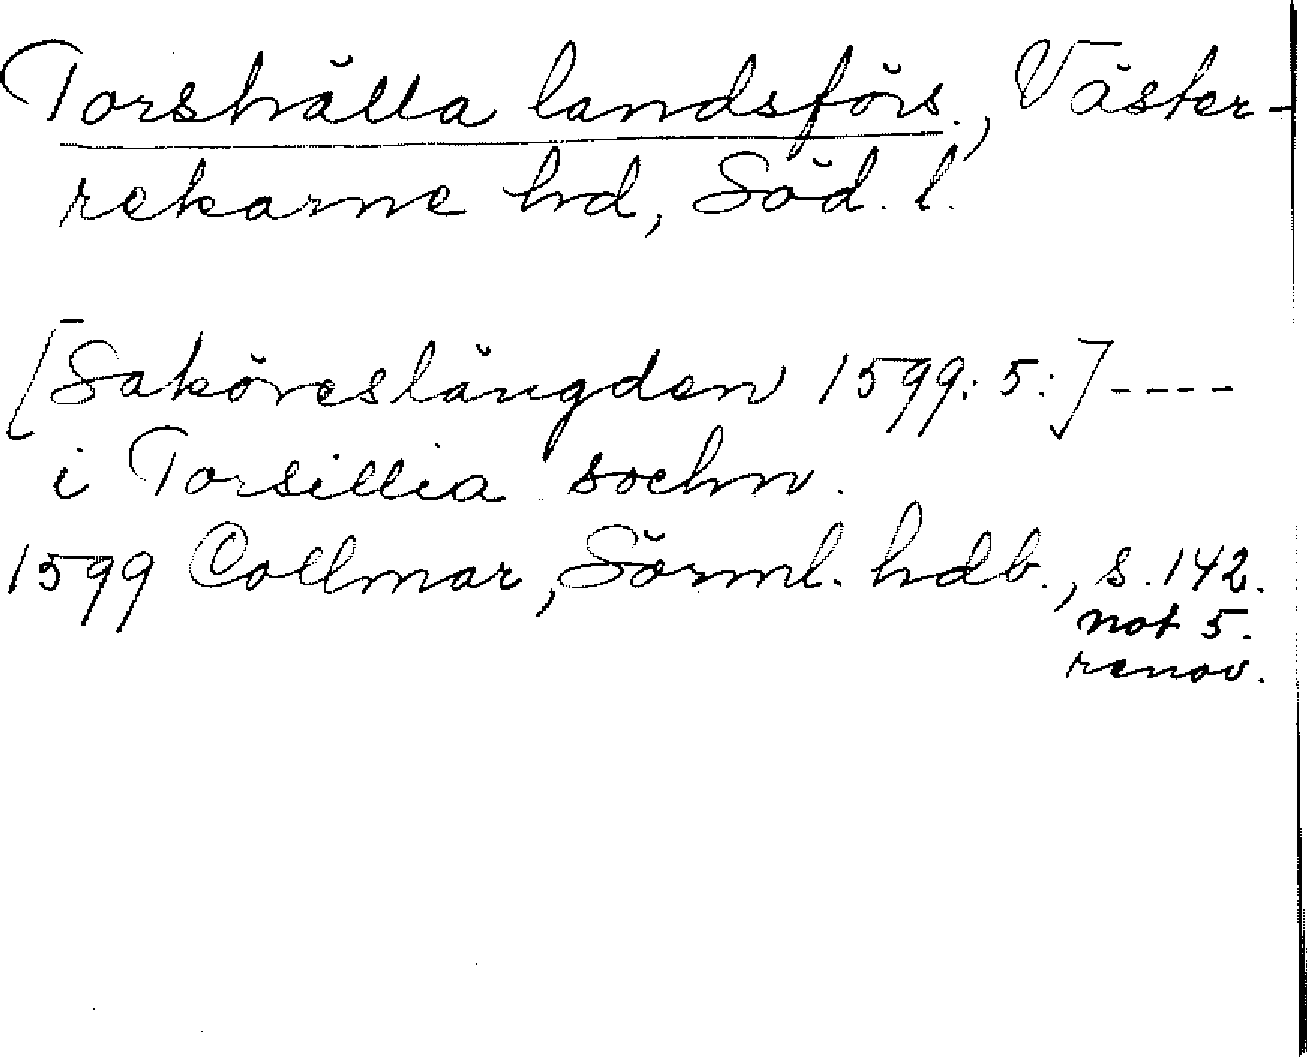 Torshälla landsförs., Väster-
rekarne hd, Söd. l.
[Saköreslängden 1599: 5:] ----
i Torsillia sochn.
1599 Collmar, Sörml. hdb., s. 142.
not 5.
renov.